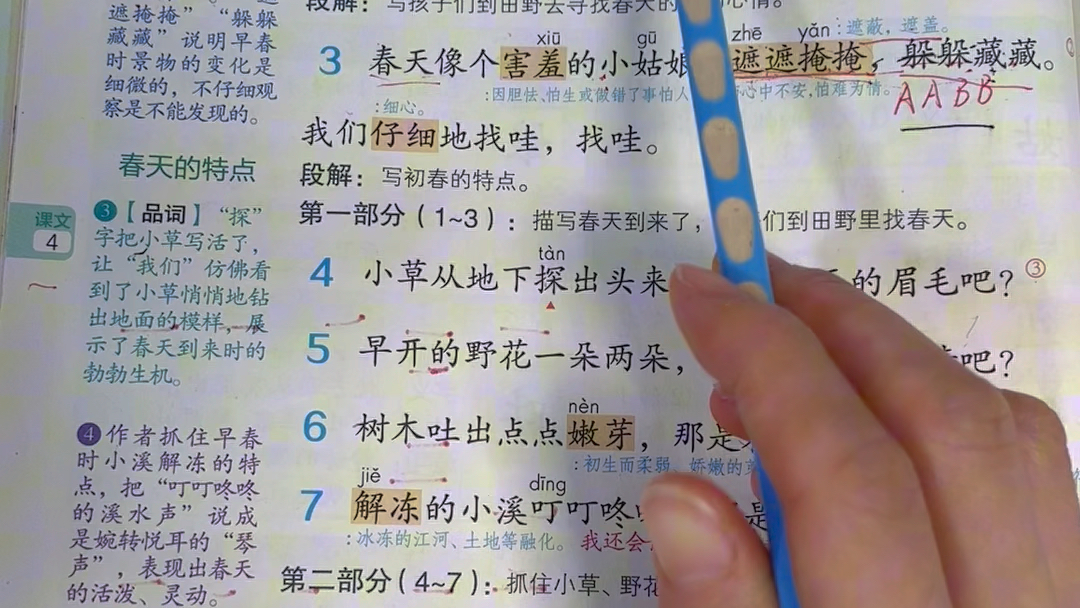 遮掩掩”“躲躲
藏藏”说明早春
时景物的变化是
细微的，不仔细观
察是不能发现的。
春天的特点
课文
4
❸【品词】“探”
字把小草写活了，
让“我们”仿佛看
到了小草悄悄地钻
出地面的模样，展
示了春天到来时的
勃勃生机。
❹作者抓住早春
时小溪解冻的特
点，把“叮叮咚咚
的溪水声”说成
是婉转悦耳的“琴
声”，表现出春天
的活泼、灵动。
段解：写孩子们到田野去寻找春天的 心情。
xiū gū zhē yǎn ：遮蔽，遮盖。
3 春天像个害羞的小姑娘 遮遮掩掩，躲躲藏藏。
：因胆怯、怕生或做错了事怕人 心中不安，怕难为情。
AABB
：细心。
我们仔细地找哇，找哇。
段解：写初春的特点。
第一部分（1~3）：描写春天到来了， 们到田野里找春天。
tàn
4 小草从地下探出头来 的眉毛吧？③
5 早开的野花一朵两朵， 吧？
nèn
6 树木吐出点点嫩芽，那是
：初生而柔弱、娇嫩的
jiě dīng
7 解冻的小溪叮叮咚咚 是
：冰冻的江河、土地等融化。 我还会
第二部分（4~7）：抓住小草、野花